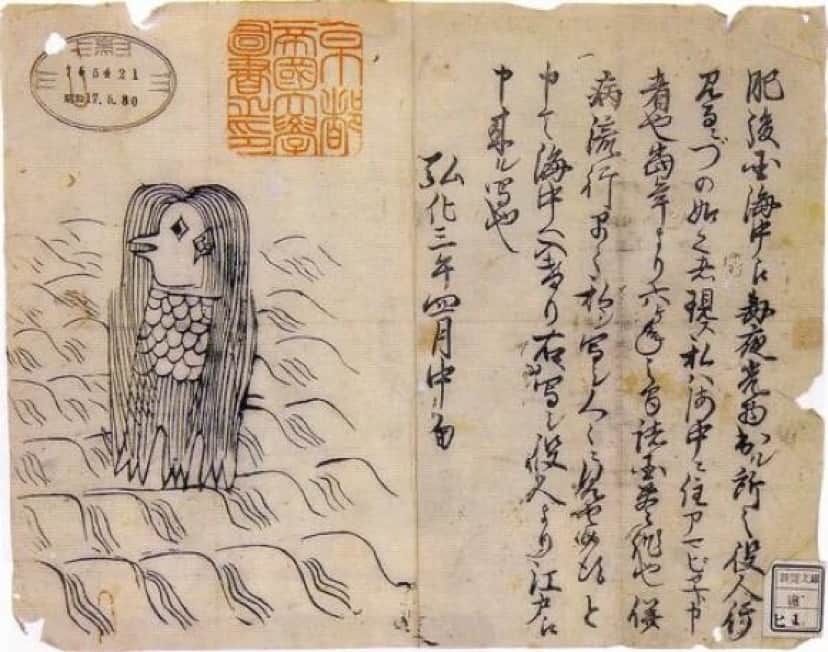 肥後国海中江毎夜光物出ル所之役人行
見るニづの如之者現ス私ハ海中ニ住アマビヱト申
者也当年より六ヶ年之間諸国豊作也併
病流行早々私シ写シ人々ニ見せ候得と
申て海中へ入けり右写シ役人より江戸江
申来ル写也
弘化三年四月中旬
京都
帝國大學
圖書之印
昭和17.5.30
ヒ 1